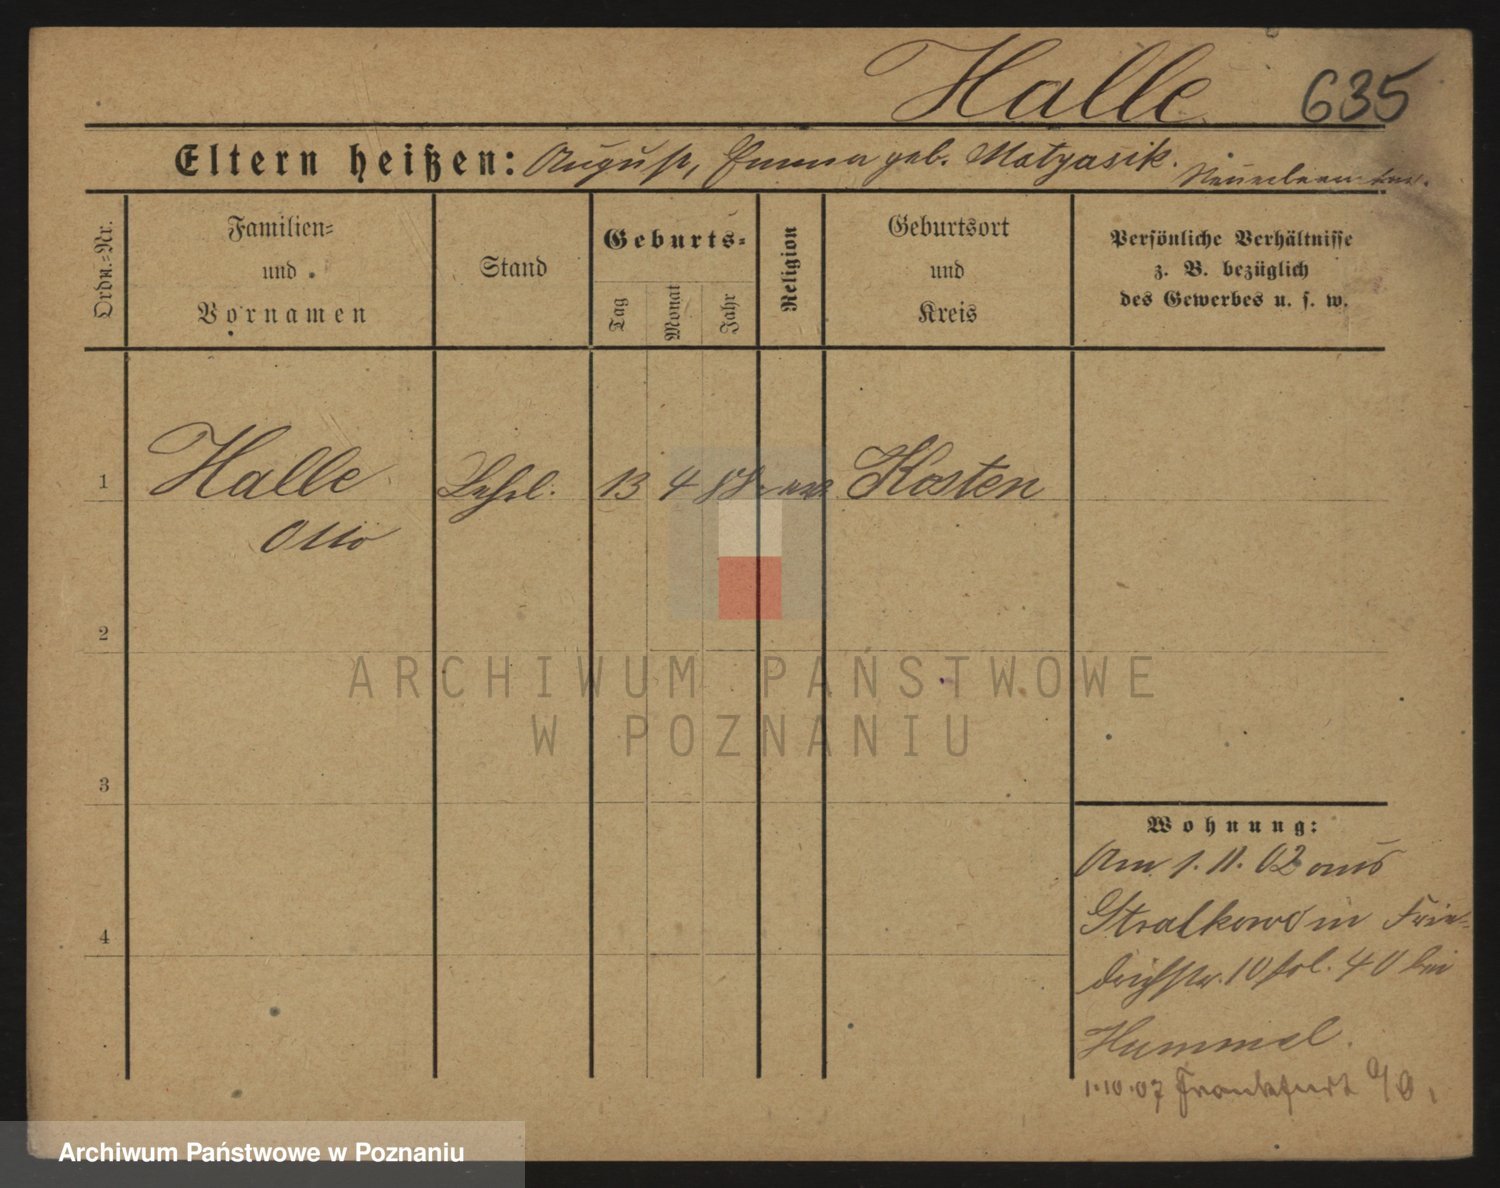 Halle 635
Eltern heißen: August, Emma geb. Matyasik.
Ordn.-Nr.
Familien-
und
Vornamen
Stand
Geburts-
Tag
Monat
Jahr
Religion
Geburtsort
und
Kreis
Persönliche Verhältnisse
z. B. bezüglich
des Gewerbes u. s. w.
1 Halle Lehrl. 13 4 88 Kosten
Otto
2
ARCHIWUM PAŃSTWOWE
W POZNANIU
3
Wohnung:
Am 1.11.02 aus
4 Stralkowo in Frie-
drichstr. 10 bei
Hummel.
1.10.07 Frankfurt a/O.
Archiwum Państwowe w Poznaniu